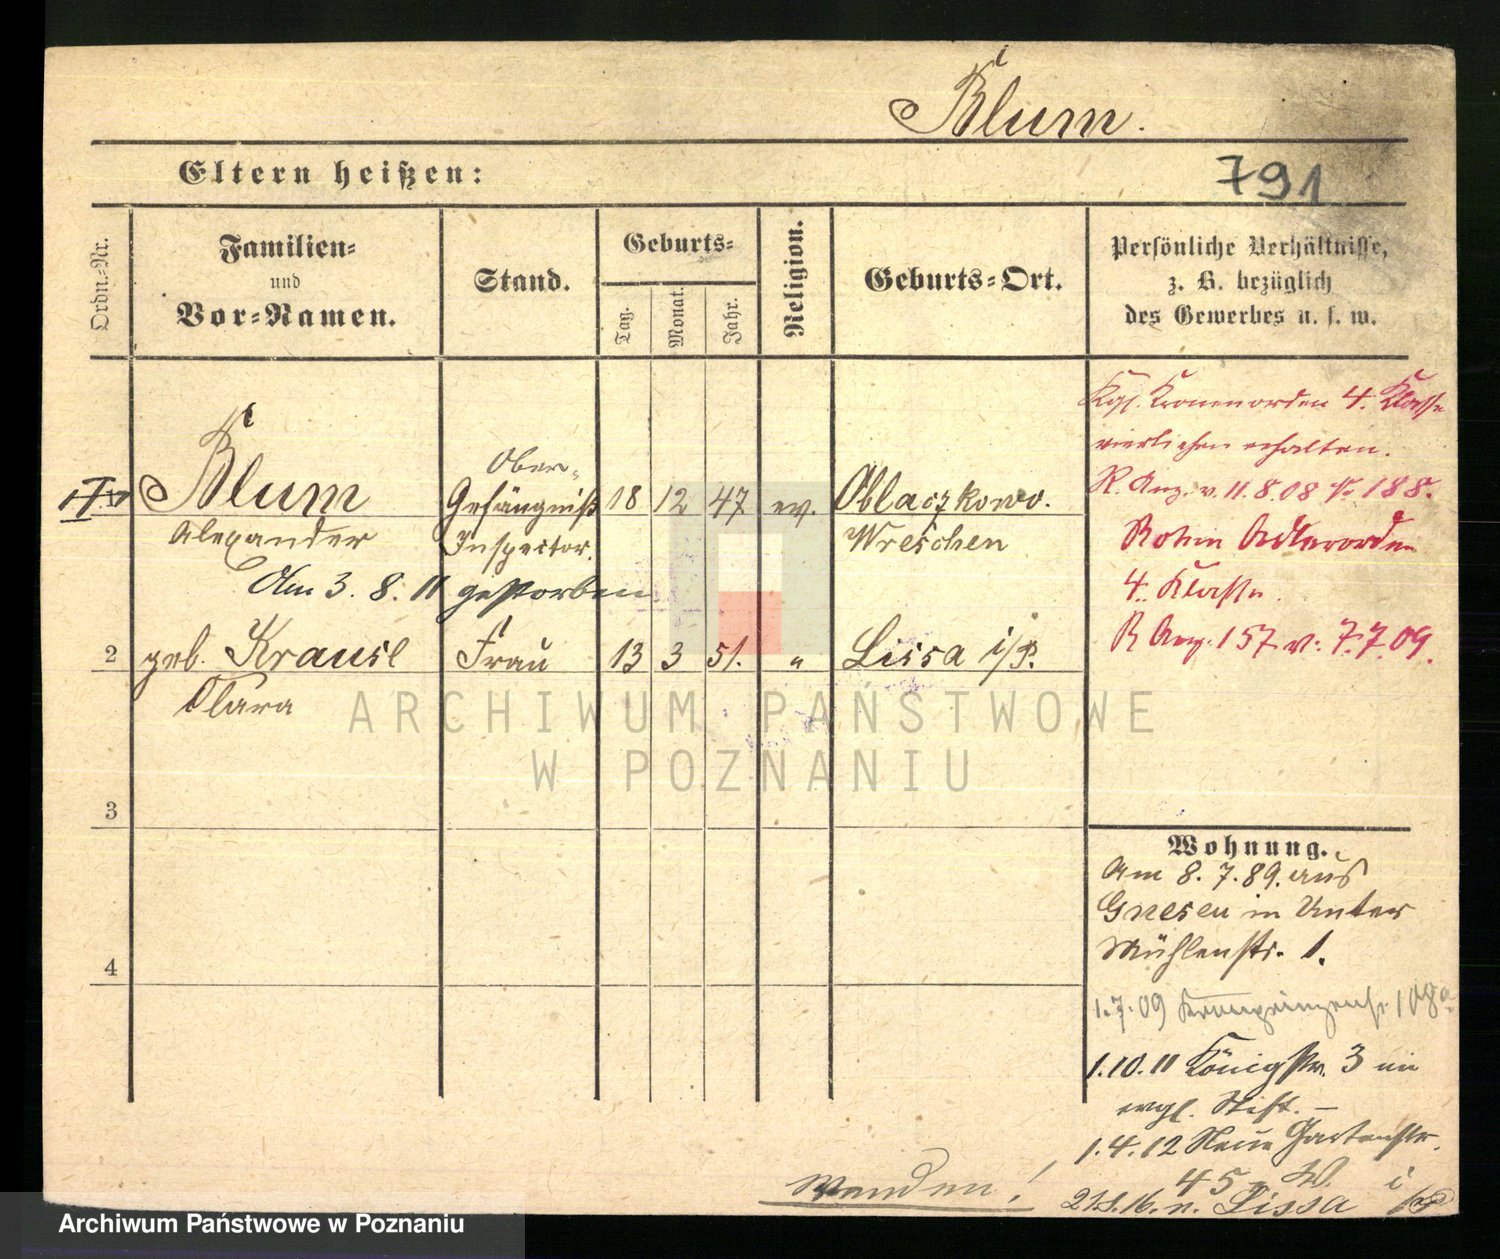 Blum.
Eltern heißen:
791
Ordn.-Nr.
Familien-
und
Vor-Namen.
Stand.
Geburts-
Tag.
Monat.
Jahr.
Religion.
Geburts-Ort.
Persönliche Verhältnisse,
z. B. bezüglich
des Gewerbes u. s. w.
Blum
Alexander
Ober-
Gefängniß
Inspector.
18 12 47 ev. Oblaczkowo.
Wreschen
Am 3. 8. 11 gestorben
2 geb. Krause Frau 13 3 51. " Lissa i/P.
Clara
3
4
Kgl. Kronenorden 4. Klasse
verliehen erhalten.
R. Anz. v. 11.8.08 188.
Roten Adlerorden
4. Klasse.
R Anz. 157 v. 7.7.09.
Wohnung.
Am 8. 7. 89. aus
Gnesen in Unter
Mühlenstr. 1.
1.7.09 Kronprinzenstr. 108a
1.10.11 Königstr. 3 im
evgl. Stift. –
1.4.12 Neue Gartenstr.
45
16. n. Lissa i/P
Wenden!
ARCHIWUM PAŃSTWOWE
W POZNANIU
Archiwum Państwowe w Poznaniu